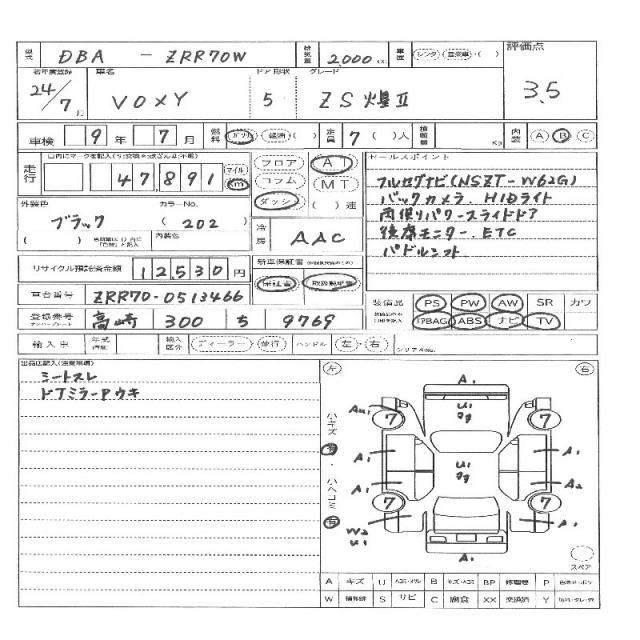 型式 DBA - ZRR70W 排気量 2,000 cc 車歴 レンタ ・ 自家用 ・( ) 評価点
初年度登録 車名 ドア形状 グレード
24/7月 VOXY 5 ZS 煌Ⅱ 3.5
車検 9 年 7 月 燃料 ガソリン ・ 軽油 ・( ) 定員 7 ( )人 積載量 Kg 内装 A B C
走行 47,891 マイル Km フロア コラム ダッシュ AT MT ( )速 セールスポイント
フルセグナビ(NSZT-W62G)
バックカメラ. HIDライト
両側パワースライドドア
後席モニター. ETC
パドルシフト
外装色 カラーNo.
ブラック ( 202 )
( ) 内装色 冷房 AAC
リサイクル預託済金額 12,530 円 新車保証書
保証書 ・ 取扱説明書
車台番号 ZRR70-0513466
装備品 PS PW AW SR カワ
ABS ナビ TV
登録番号 ナンバープレート 高崎 300 5 9769
輸入車 年式 輸入区分 ディーラー ・ 並行 ハンドル 左 ・ 右 シリアルNo.
シートスレ
ドアミラーPウキ
左 右
小キズ 有 ・ 小ヘコミ 有
A1
U1
AU1 7 7
A1 A1
U1
A1 A2
7 7
W2 U1 A1
A1
スペア
A キズ U B BP 修理歴 P
W 補修跡 S サビ C 腐食 XX 交換済 Y